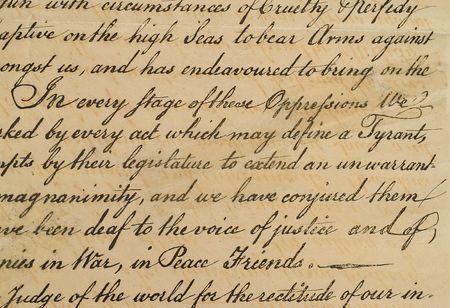 gun with circumstances of Cruelty & perfidy
aptive on the high Seas to bear Arms against
ongst us, and has endeavoured to bring on the
In every stage of these Oppressions We
rked by every act which may define a Tyrant,
mpts by their legislature to extend an unwarrant-
magnanimity, and we have conjured them
ve been deaf to the voice of justice and of
mies in War, in Peace Friends. —
Judge of the world for the rectitude of our in-